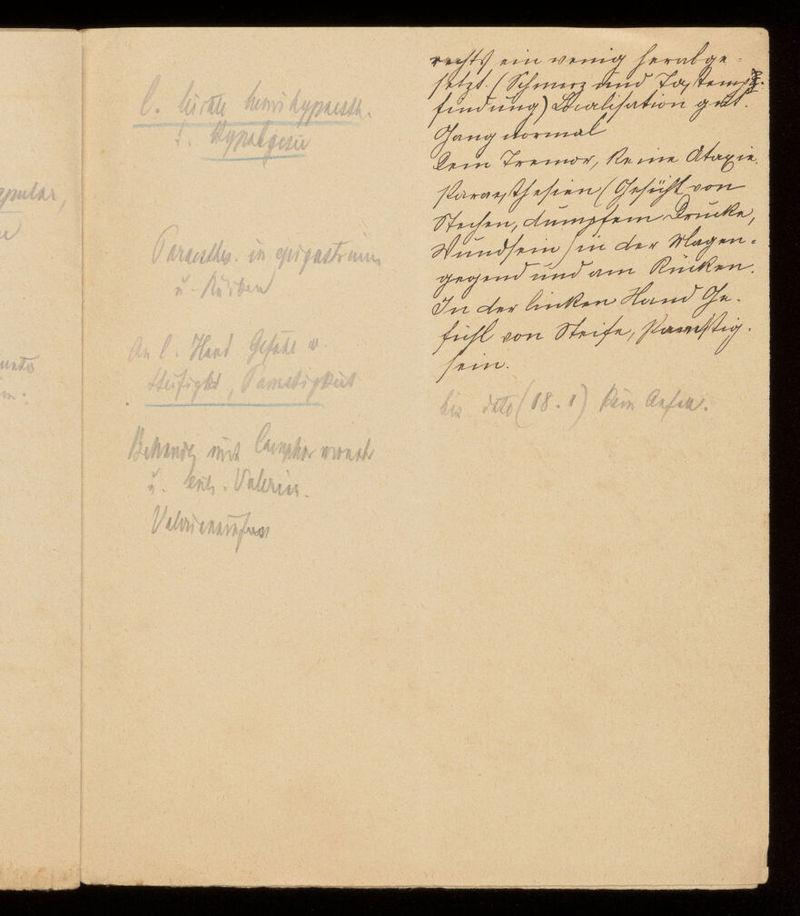 l. leichte hemihypaesth.
u. Hypalgesie
Paraesthes. in epigastrium
u. Rücken
An l. Hand Gefühl v.
Steifigkt, Pamstigkeit
Behandlg mit Camphor monobr
u. Extr. Valerian.
rechts ein wenig herabge-
setzt. (Schmerz und Tastemp-
findung) Localisation gut.
Gang normal
Kein Tremor, keine Ataxie.
Paraesthesien (Gefühl von
Stechen, dumpfem Drucke,
Wundsein) in der Magen-
gegend und am Rücken.
In der linken Hand Ge-
fühl von Steife, Pamstig-
sein.
bis dato (18.1) kein Anfall.